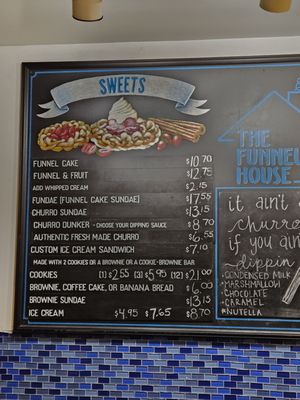 SWEETS
FUNNEL CAKE $10.70
FUNNEL & FRUIT $12.75
ADD WHIPPED CREAM $2.15
FUNDAE (FUNNEL CAKE SUNDAE) $17.55
CHURRO SUNDAE $13.15
CHURRO DUNKER - CHOOSE YOUR DIPPING SAUCE $8.70
AUTHENTIC FRESH MADE CHURRO $6.55
CUSTOM ICE CREAM SANDWICH $7.10
MADE WITH 2 COOKIES OR A BROWNIE OR A COOKIE-BROWNIE BAR
COOKIES (1) $2.55 (3) $5.95 (12) $21.00
BROWNIE, COFFEE CAKE, OR BANANA BREAD $6.00
BROWNIE SUNDAE $13.15
ICE CREAM $4.95 $7.65 $8.70
THE
FUNNEL
HOUSE
it ain't
churro
if you ain'
dippin
•CONDENSED MILK
•MARSHMALLOW
•CHOCOLATE
•CARAMEL
•NUTELLA